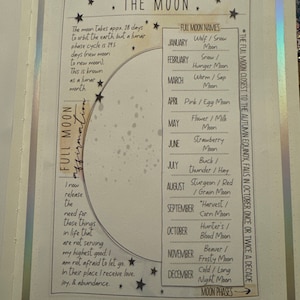 THE MOON
The moon takes apprx. 28 days
to orbit the earth, but a lunar
phase cycle is 29.5
days (new moon
to new moon).
This is known
as a lunar
month.
FULL MOON
affirmation
I now
release
the
need for
those things
in life that
are not serving
my highest good. I
am not afraid to let go.
In their place I receive love,
joy, & abundance.
FULL MOON NAMES
JANUARY Wolf / Snow
Moon
FEBRUARY Snow /
Hunger Moon
MARCH Worm / Sap
Moon
APRIL Pink / Egg Moon
MAY Flower / Milk
Moon
JUNE Strawberry
Moon
JULY Buck /
Thunder / Hay
AUGUST Sturgeon / Red
/ Grain Moon
SEPTEMBER *Harvest /
Corn Moon
OCTOBER Hunter's /
Blood Moon
NOVEMBER Beaver /
Frosty Moon
DECEMBER Cold / Long
Night Moon
MOON PHASES
*THE FULL MOON CLOSEST TO THE AUTUMN EQUINOX, FALLS IN OCTOBER ONCE OR TWICE A DECADE